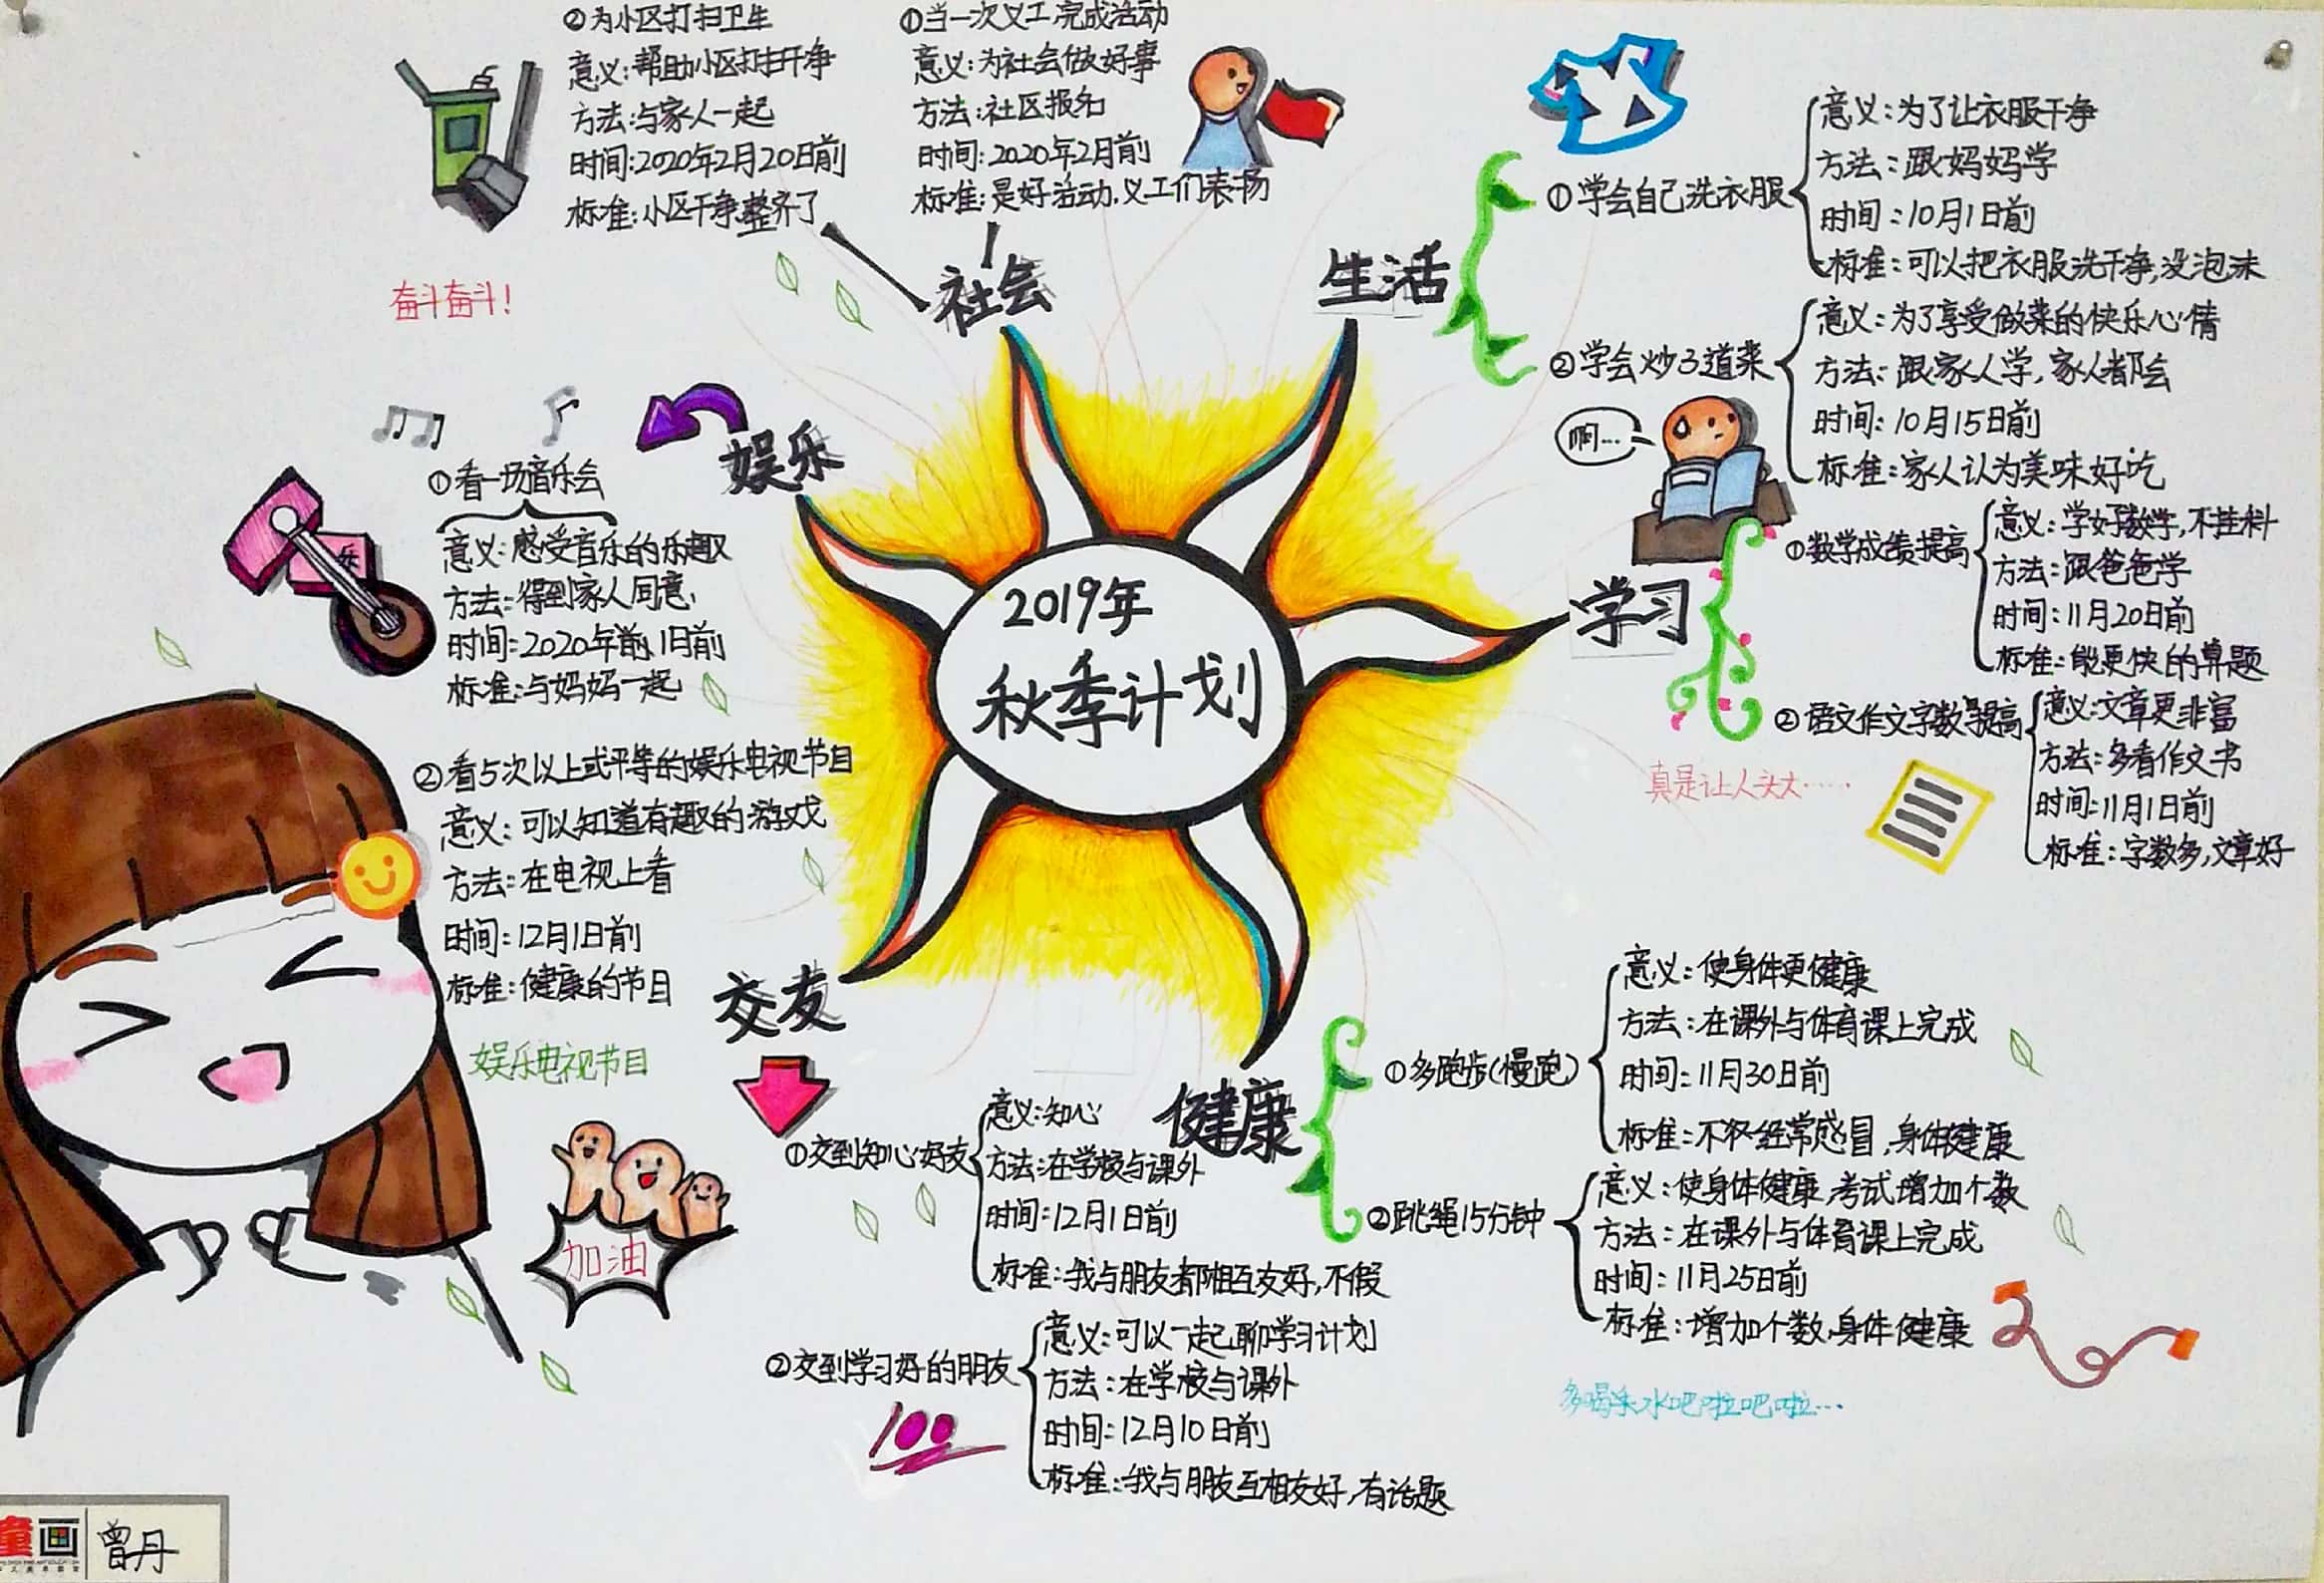 2019年
秋季计划
社会
①当一次义工,完成活动
意义:为社会做好事
方法:社区报名
时间:2020年2月前
标准:是好活动,义工们表扬
②为小区打扫卫生
意义:帮助小区打扫干净
方法:与家人一起
时间:2020年2月20日前
标准:小区干净整齐了
奋斗奋斗!
生活
①学会自己洗衣服
意义:为了让衣服干净
方法:跟妈妈学
时间:10月1日前
标准:可以把衣服洗干净,没泡沫
②学会炒3道菜
意义:为了享受做菜的快乐心情
方法:跟家人学,家人都会
时间:10月15日前
标准:家人认为美味好吃
啊…
学习
①数学成绩提高
意义:学好数学,不挂科
方法:跟爸爸学
时间:11月20日前
标准:能更快的算题
②语文作文字数提高
意义:文章更非富
方法:多看作文书
时间:11月1日前
标准:字数多,文章好
真是让人头大……
健康
①多跑步(慢跑)
意义:使身体更健康
方法:在课外与体育课上完成
时间:11月30日前
标准:不经常感冒,身体健康
②跳绳15分钟
意义:使身体健康,考试增加个数
方法:在课外与体育课上完成
时间:11月25日前
标准:增加个数,身体健康
水吧啦吧啦…
交友
①交到知心好友
意义:知心
方法:在学校与课外
时间:12月1日前
标准:我与朋友都相互友好,不假
②交到学习好的朋友
意义:可以一起聊学习计划
方法:在学校与课外
时间:12月10日前
标准:我与朋友互相友好,有话题
100
加油
娱乐
①看一场音乐会
意义:感受音乐的乐趣
方法:得到家人同意
时间:2020年1日前
标准:与妈妈一起
乐
②看5次以上或平等的娱乐电视节目
意义:可以知道有趣的游戏
方法:在电视上看
时间:12月1日前
标准:健康的节目
娱乐电视节目
童画
曾丹